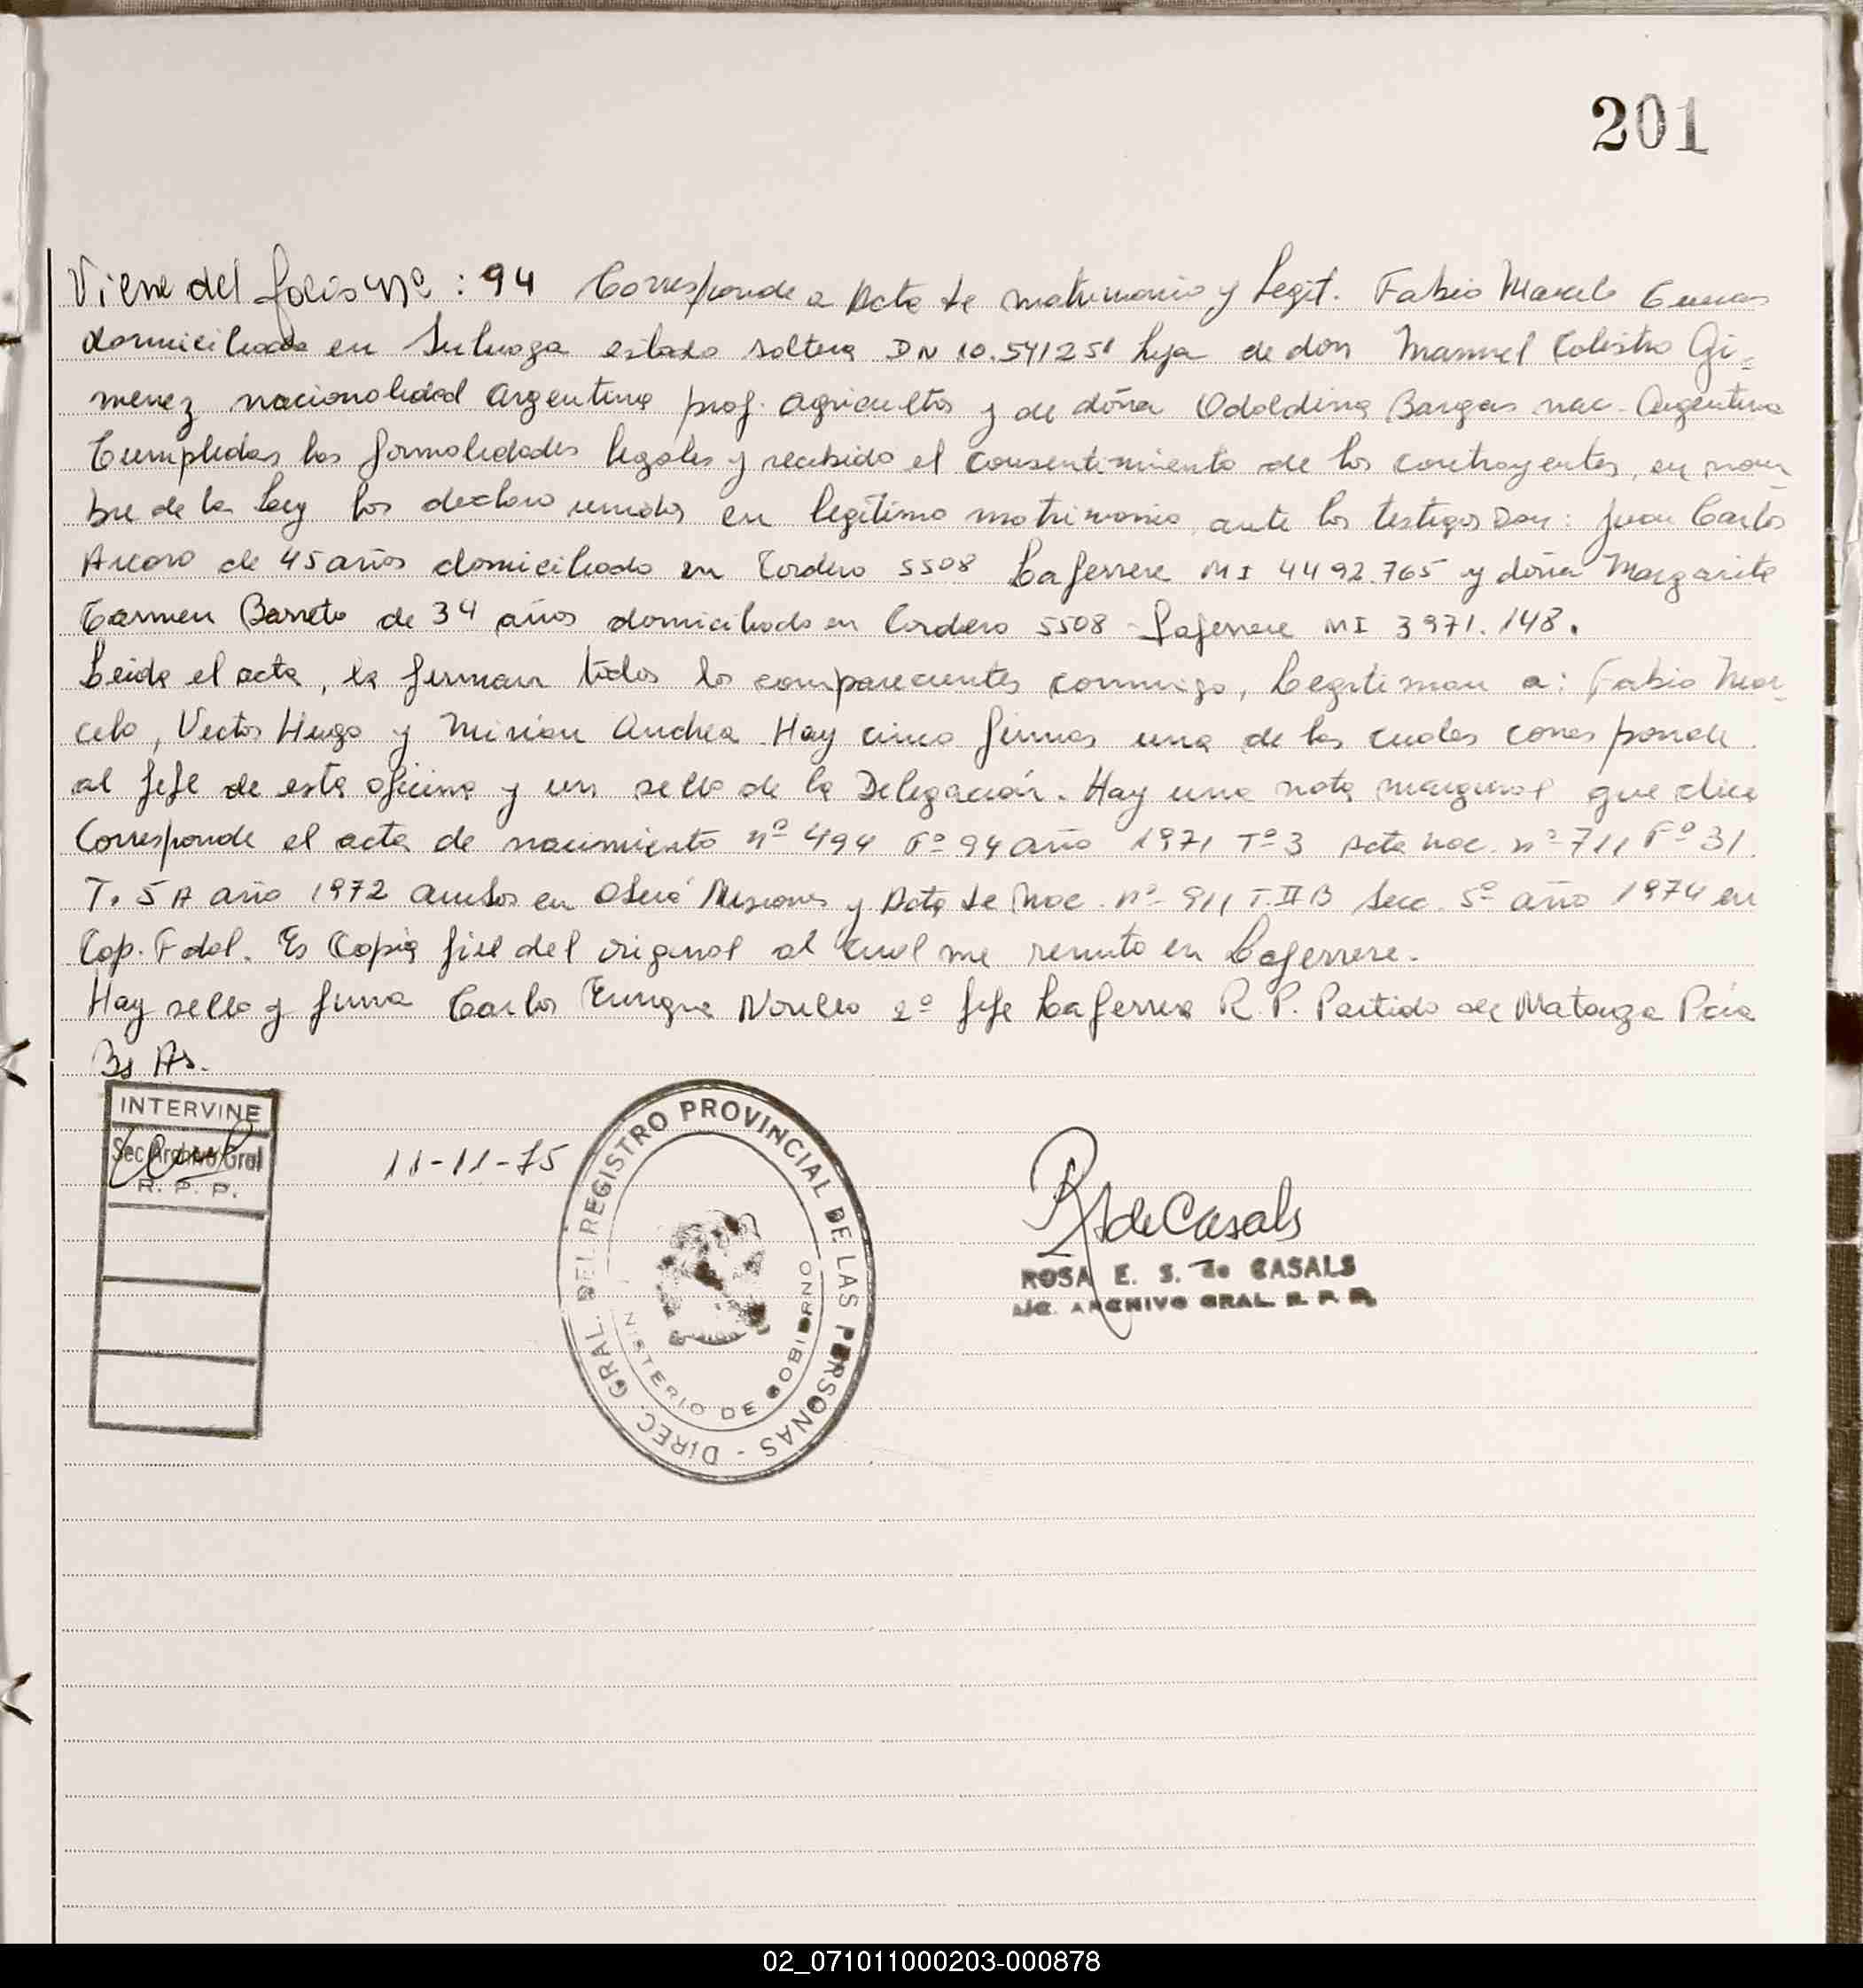 201
Viene del folio nº : 94 Corresponde a Acta de matrimonio y Legit. Fabio Marcelo
domiciliada en estado soltera DN 10.541251 hija de don Manuel Calistro Gi-
menez nacionalidad Argentina prof. agricultor y de doña Odoldina Bargas nac. Argentina
Cumplidas las formalidades legales y recibido el consentimiento de los contrayentes, en nom-
bre de la Ley los declaro unidos en legítimo matrimonio, ante los testigos Don: Juan Carlos
de 45 años domiciliado en Cordero 5508 Laferrere MI 4492.765 y doña Margarita
Carmen Barreto de 34 años domiciliado en Cordero 5508 - Laferrere MI 3971.148.
Leida el acta, la firman todos los comparecientes conmigo, Legitiman a: Fabio Mar-
celo, Victor Hugo y Mirian Andrea. Hay cinco firmas una de las cuales corresponde
al Jefe de esta oficina y un sello de la Delegación. Hay una nota marginal que dice
Corresponde el acta de nacimiento nº 494 Fº 94 año 1971 Tº 3 Acta nac. nº 711 Fº 31
T. 5 A año 1972 ambos en Oberá Misiones y Acta de Nac. nº 911 T. II B Secc. 5º año 1974 en
Cap. Fdal. Es Copia fiel del original al cual me remito en Laferrere.
Hay sello y firma Carlos Enrique 2º Jefe Laferrere R. P. Partido de Matanza Pcia
Bs As.
INTERVINE
Sec Archivo Gral
R. P. P.
11-11-75
DIREC. GRAL. DEL REGISTRO PROVINCIAL DE LAS PERSONAS -
MINISTERIO DE GOBIERNO
R S de Casals
ROSA E. S. de CASALS
ARCHIVO GRAL. R. P. P.
02_071011000203-000878